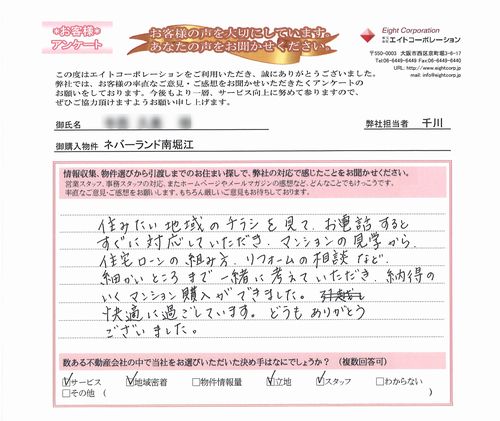 *お客様*
アンケート
お客様の声を大切にしています。
あなたの声をお聞かせください。
Eight Corporation
株式会社エイトコーポレーション
〒550-0003 大阪市西区京町堀3-6-17
Tel:06-6449-6449 Fax:06-6449-6440
URL: http://www.eightcorp.jp
mail: info@eightcorp.jp
この度はエイトコーポレーションをご利用いただき、誠にありがとうございました。
弊社では、お客様の率直なご意見・ご感想をお聞かせいただきたくアンケートの
お願いをしております。今後もより一層、サービス向上に努めて参りますので、
ぜひご協力頂けますようお願い申し上げます。
御氏名 様 弊社担当者 千川
御購入物件 ネバーランド南堀江
情報収集、物件選びから引渡しまでのお住まい探しで、弊社の対応で感じたことをお聞かせください。
営業スタッフ、事務スタッフの対応、またホームページやメールマガジンの感想など、どんなことでもけっこうです。
率直なご意見・ご感想をお願いします。もちろん厳しいご意見もお待ちしております。
住みたい地域のチラシを見て、お電話すると
すぐに対応していただき、マンションの見学から、
住宅ローンの組み方、リフォームの相談など、
細かいところまで一緒に考えていただき、納得の
いくマンション購入ができました。
快適に過ごしています。どうもありがとう
ございました。
数ある不動産会社の中で当社をお選びいただいた決め手はなにでしょうか？（複数回答可）
☑サービス ☑地域密着 □物件情報量 ☑立地 ☑スタッフ □わからない
□その他（ ）